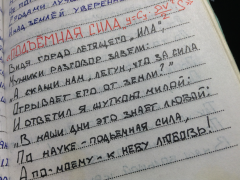 НАД ЗЕМЛЁЙ УВЕРЕННО
"ПОДЪЁМНАЯ СИЛА"
ВИДЯ ГОРДО ЛЕТЯЩЕГО "ИЛА",
МУЖИКИ РАЗГОВОР ЗАВЕЛИ:
"А СКАЖИ НАМ, ЛЕГУН, ЧТО ЗА СИЛА
ОТРЫВАЕТ ЕГО ОТ ЗЕМЛИ?"
И ОТВЕТИЛ Я ШУТКОЮ МИЛОЙ:
"В НАШИ ДНИ ЭТО ЗНАЕТ ЛЮБОЙ:
ПО НАУКЕ - ПОДЪЁМНАЯ СИЛА,
А ПО-МОЕМУ - К НЕБУ ЛЮБОВЬ!